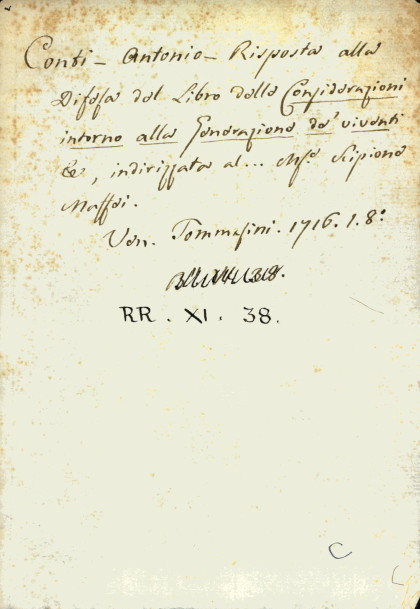 Conti - Antonio - Risposta alla
Difesa del Libro delle Considerazioni
intorno alla Generazione de' viventi
&c, indirizzata al... Mse Scipione
Maffei.
Ven. Tommasini. 1716. 1. 8º
RR. XI. 38.
C